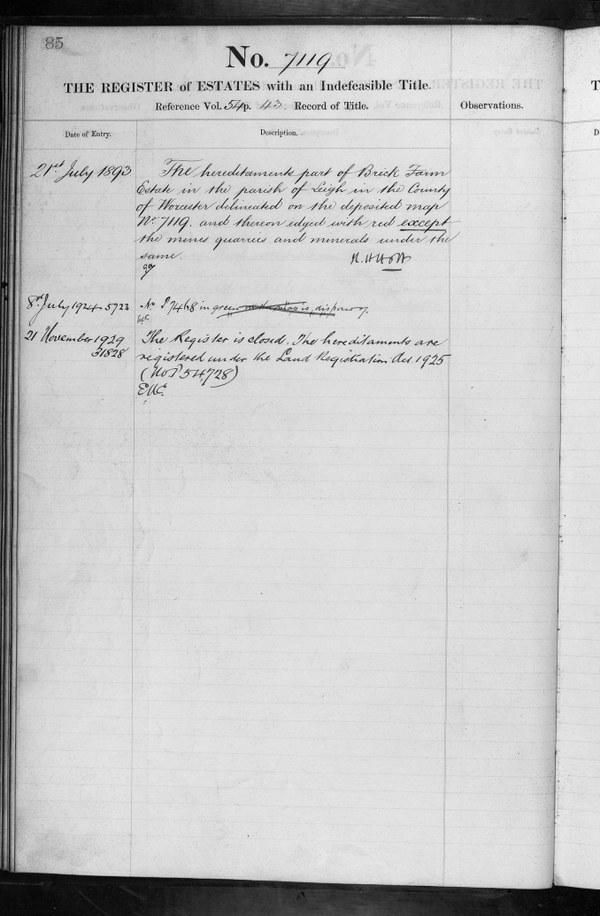 85
No. 7119
THE REGISTER of ESTATES with an Indefeasible Title.
Reference Vol. 54 p. 43 Record of Title.
Observations.
Date of Entry.
Description.
21st July 1893
The hereditaments part of Brick Farm
Estate in the parish of Leigh in the County
of Worcester delineated on the deposited map
No. 7119. and thereon edged with red except
the mines quarries and minerals under the
same.
8th July 1924 5723
No P 7468 in green
21 November 1929
31828
The Register is closed. The hereditaments are
registered under the Land Registration Act. 1925
(No P 54728)